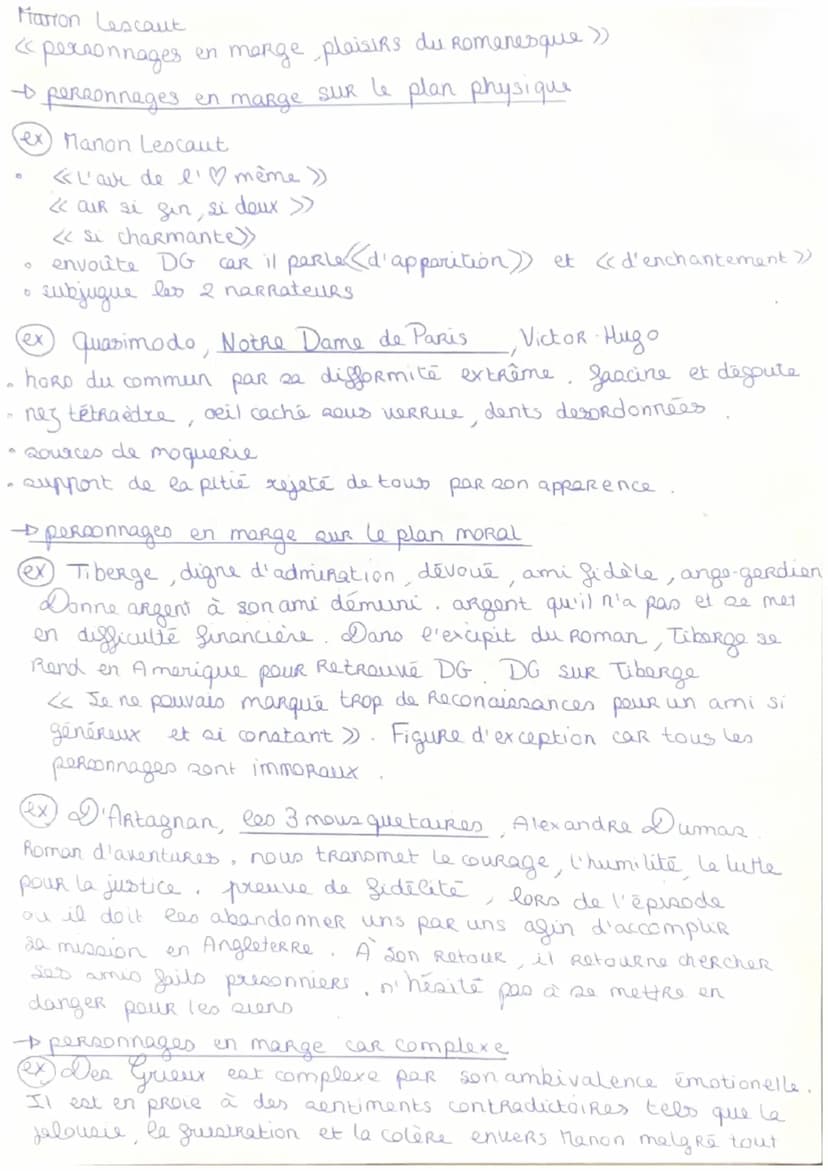 Manon Lescaut
« personnages en marge, plaisirs du romanesque »
→ personnages en marge sur le plan physique
ex Manon Lescaut
• « L'air de l'♡ même »
« air si fin, si doux »
« si charmante »
• envoûte DG car il parle « d'apparition » et « d'enchantement »
• subjugue les 2 narrateurs
ex Quasimodo, Notre Dame de Paris, Victor Hugo
• hors du commun par sa difformité extrême. fascine et dégoute
• nez tétraèdre, oeil caché sous verrue, dents desordonnées.
• sources de moquerie
• support de la pitié rejeté de tous par son apparence.
→ personnages en marge sur le plan moral
ex Tiberge, digne d'admiration, dévoué, ami fidèle, ange-gardien
Donne argent à son ami démuni. argent qu'il n'a pas et se met
en difficulté financière. Dans l'excipit du roman, Tiberge se
rend en Amerique pour retrouvé DG. DG sur Tiberge
« Je ne pouvais marqué trop de reconaissances pour un ami si
généreux et si constant ». Figure d'exception car tous les
personnages sont immoraux.
ex D'Artagnan, les 3 mousquetaires, Alexandre Dumas.
Roman d'aventures, nous transmet le courage, l'humilité, la lutte
pour la justice. preuve de fidélité, lors de l'épisode
ou il doit les abandonner uns par uns afin d'accomplir
sa mission en Angleterre. A son retour, il retourne chercher
ses amis faits prisonniers. n'hésité pas à se mettre en
danger pour les siens
→ personnages en marge car complexe
ex Des Grieux est complexe par son ambivalence émotionelle.
Il est en proie à des sentiments contradictoires tels que la
jalousie, la frustration et la colère envers Manon malgré tout